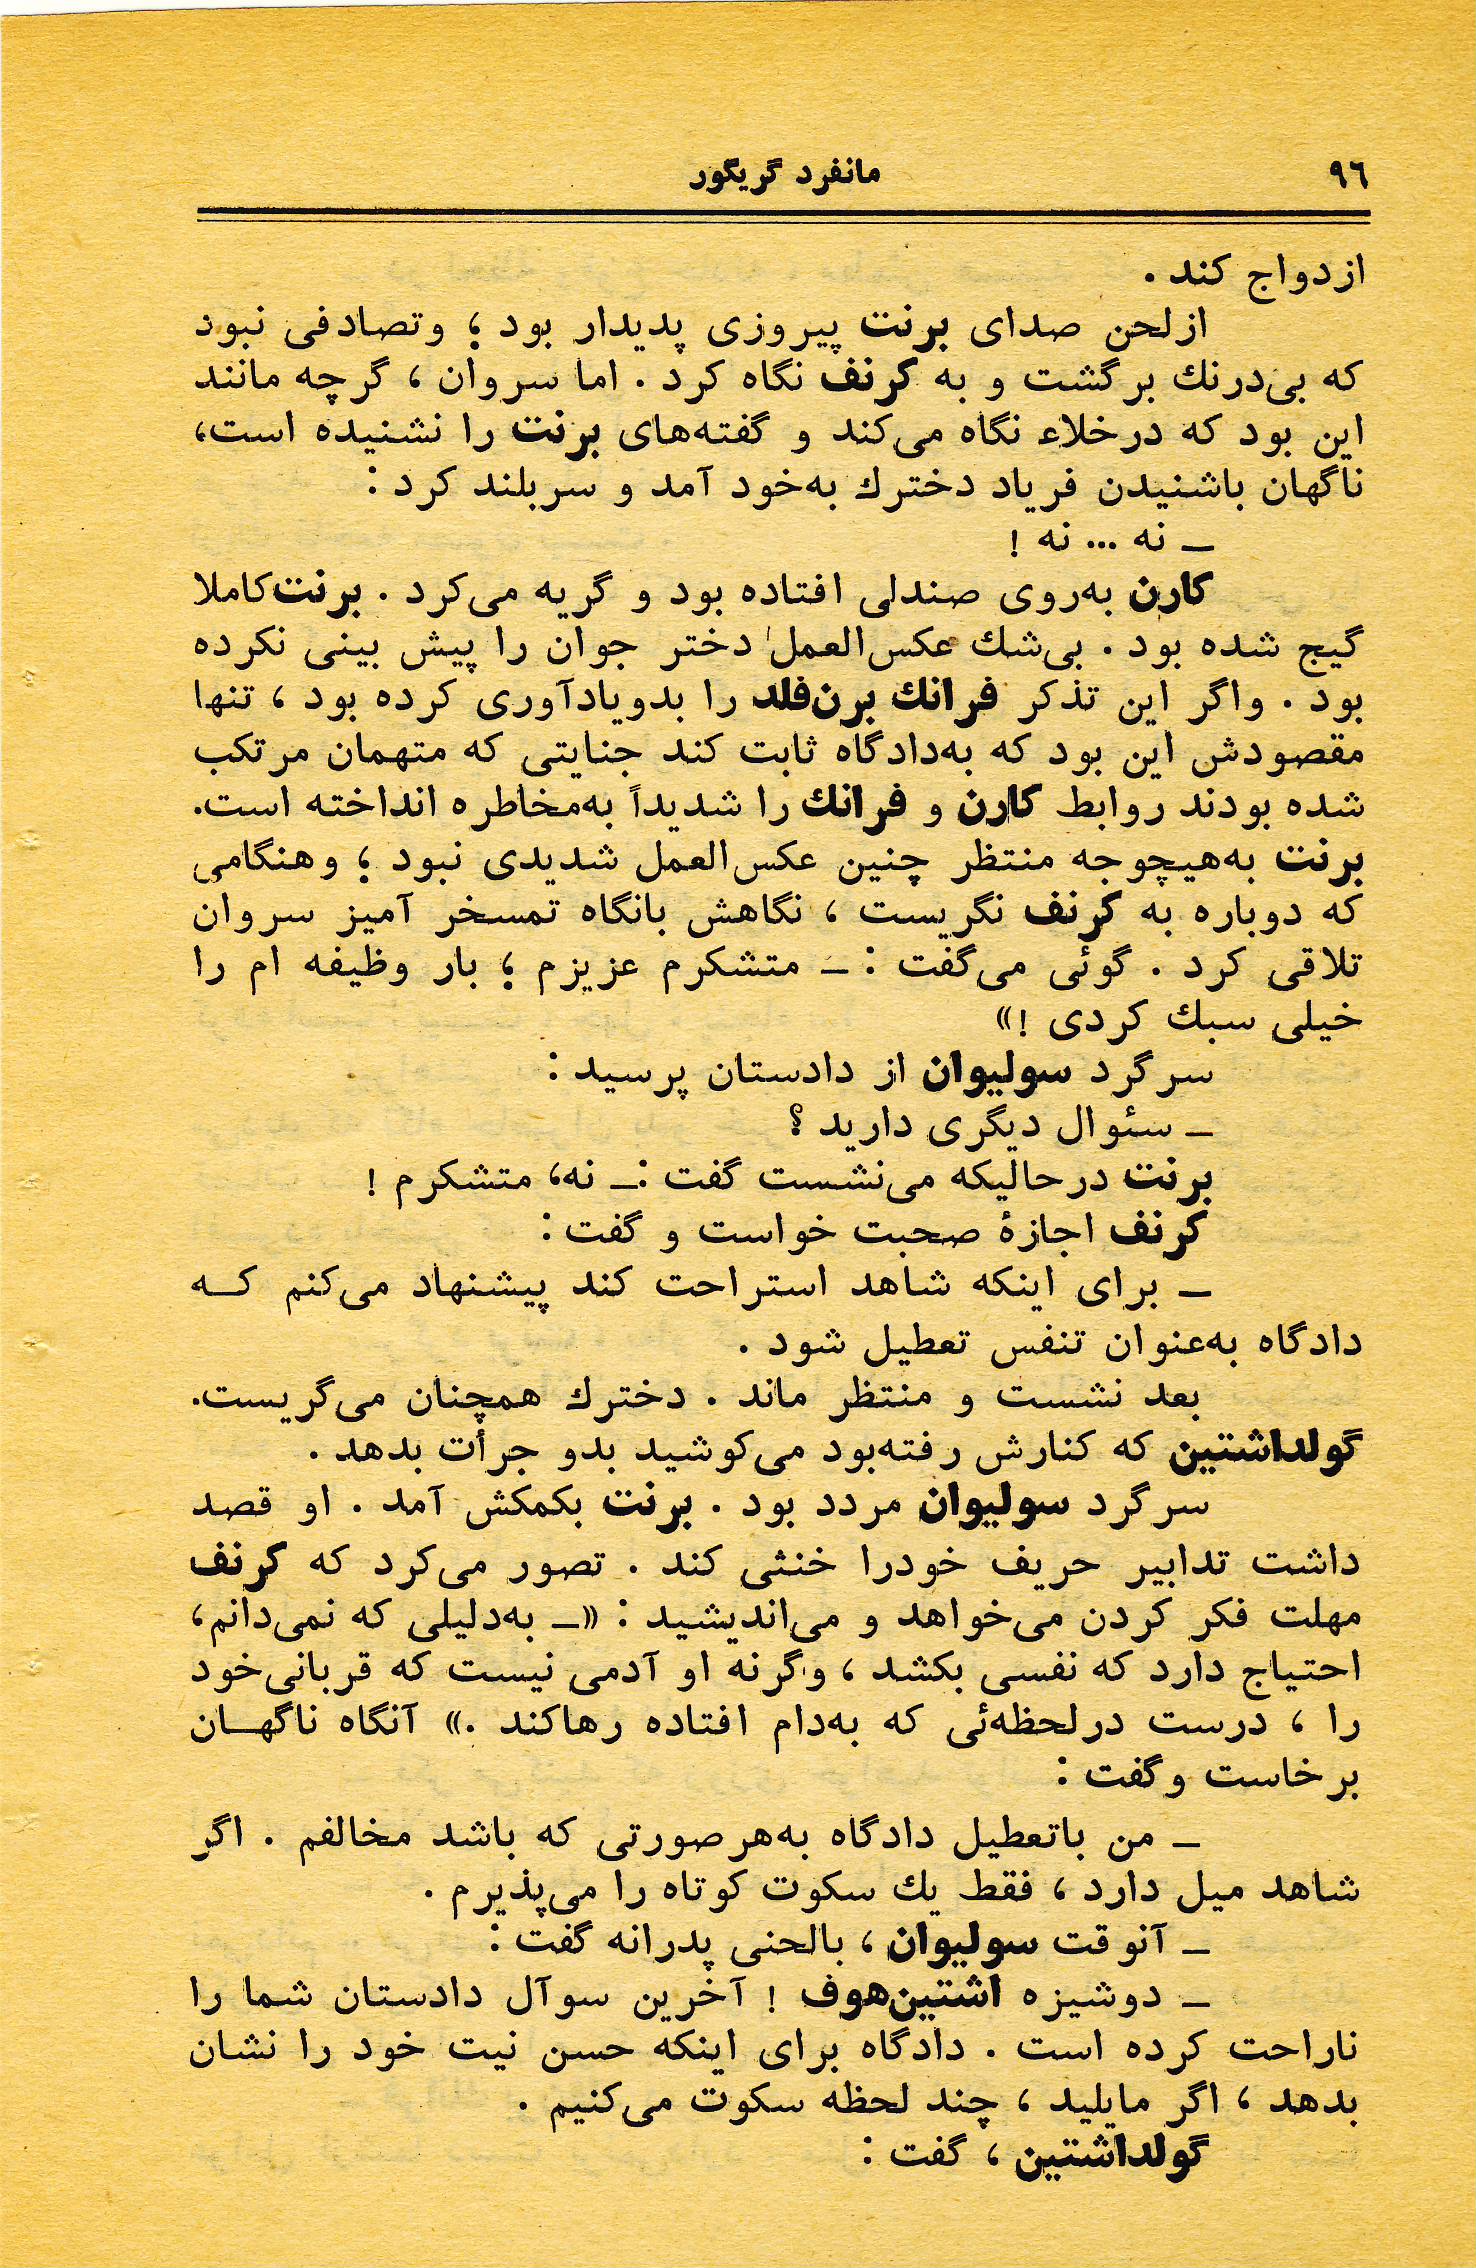 ۹٦
مانفرد گریگور
ازدواج کند .
ازلحن صدای برنت پیروزی پدیدار بود ؛ وتصادفی نبود
که بی‌درنك برگشت و به کرنف نگاه کرد . اما سروان ، گرچه مانند
این بود که درخلاء نگاه می‌کند و گفته‌های برنت را نشنیده است،
ناگهان باشنیدن فریاد دخترك به‌خود آمد و سربلند کرد :
ــ نه ... نه !
کارن به‌روی صندلی افتاده بود و گریه می‌کرد . برنت‌کاملا
گیج شده بود . بی‌شك عکس‌العمل دختر جوان را پیش بینی نکرده
بود . واگر این تذکر فرانك برن‌فلد را بدویادآوری کرده بود ، تنها
مقصودش این بود که به‌دادگاه ثابت کند جنایتی که متهمان مرتکب
شده بودند روابط کارن و فرانك را شدیداً به‌مخاطره انداخته است.
برنت به‌هیچوجه منتظر چنین عکس‌العمل شدیدی نبود ؛ وهنگامی
که دوباره به کرنف نگریست ، نگاهش بانگاه تمسخر آمیز سروان
تلاقی کرد . گوئی می‌گفت : ــ متشکرم عزیزم ؛ بار وظیفه ام را
خیلی سبك کردی !»
سرگرد سولیوان از دادستان پرسید :
ــ سئوال دیگری دارید ؟
برنت درحالیکه می‌نشست گفت :ــ نه، متشکرم !
کرنف اجازهٔ صحبت خواست و گفت :
ــ برای اینکه شاهد استراحت کند پیشنهاد می‌کنم کــه
دادگاه به‌عنوان تنفس تعطیل شود .
بعد نشست و منتظر ماند . دخترك همچنان می‌گریست.
گولداشتین که کنارش رفته‌بود می‌کوشید بدو جرأت بدهد .
سرگرد سولیوان مردد بود . برنت بکمکش آمد . او قصد
داشت تدابیر حریف خودرا خنثی کند . تصور می‌کرد که کرنف
مهلت فکر کردن می‌خواهد و می‌اندیشید : «ــ به‌دلیلی که نمی‌دانم،
احتیاج دارد که نفسی بکشد ، وگرنه او آدمی نیست که قربانی‌خود
را ، درست درلحظه‌ئی که به‌دام افتاده رهاکند .» آنگاه ناگهــان
برخاست وگفت :
ــ من باتعطیل دادگاه به‌هرصورتی که باشد مخالفم . اگر
شاهد میل دارد ، فقط یك سکوت کوتاه را می‌پذیرم .
ــ آنوقت سولیوان ، بالحنی پدرانه گفت :
ــ دوشیزه اشتین‌هوف ! آخرین سوآل دادستان شما را
ناراحت کرده است . دادگاه برای اینکه حسن نیت خود را نشان
بدهد ، اگر مایلید ، چند لحظه سکوت می‌کنیم .
گولداشتین ، گفت :